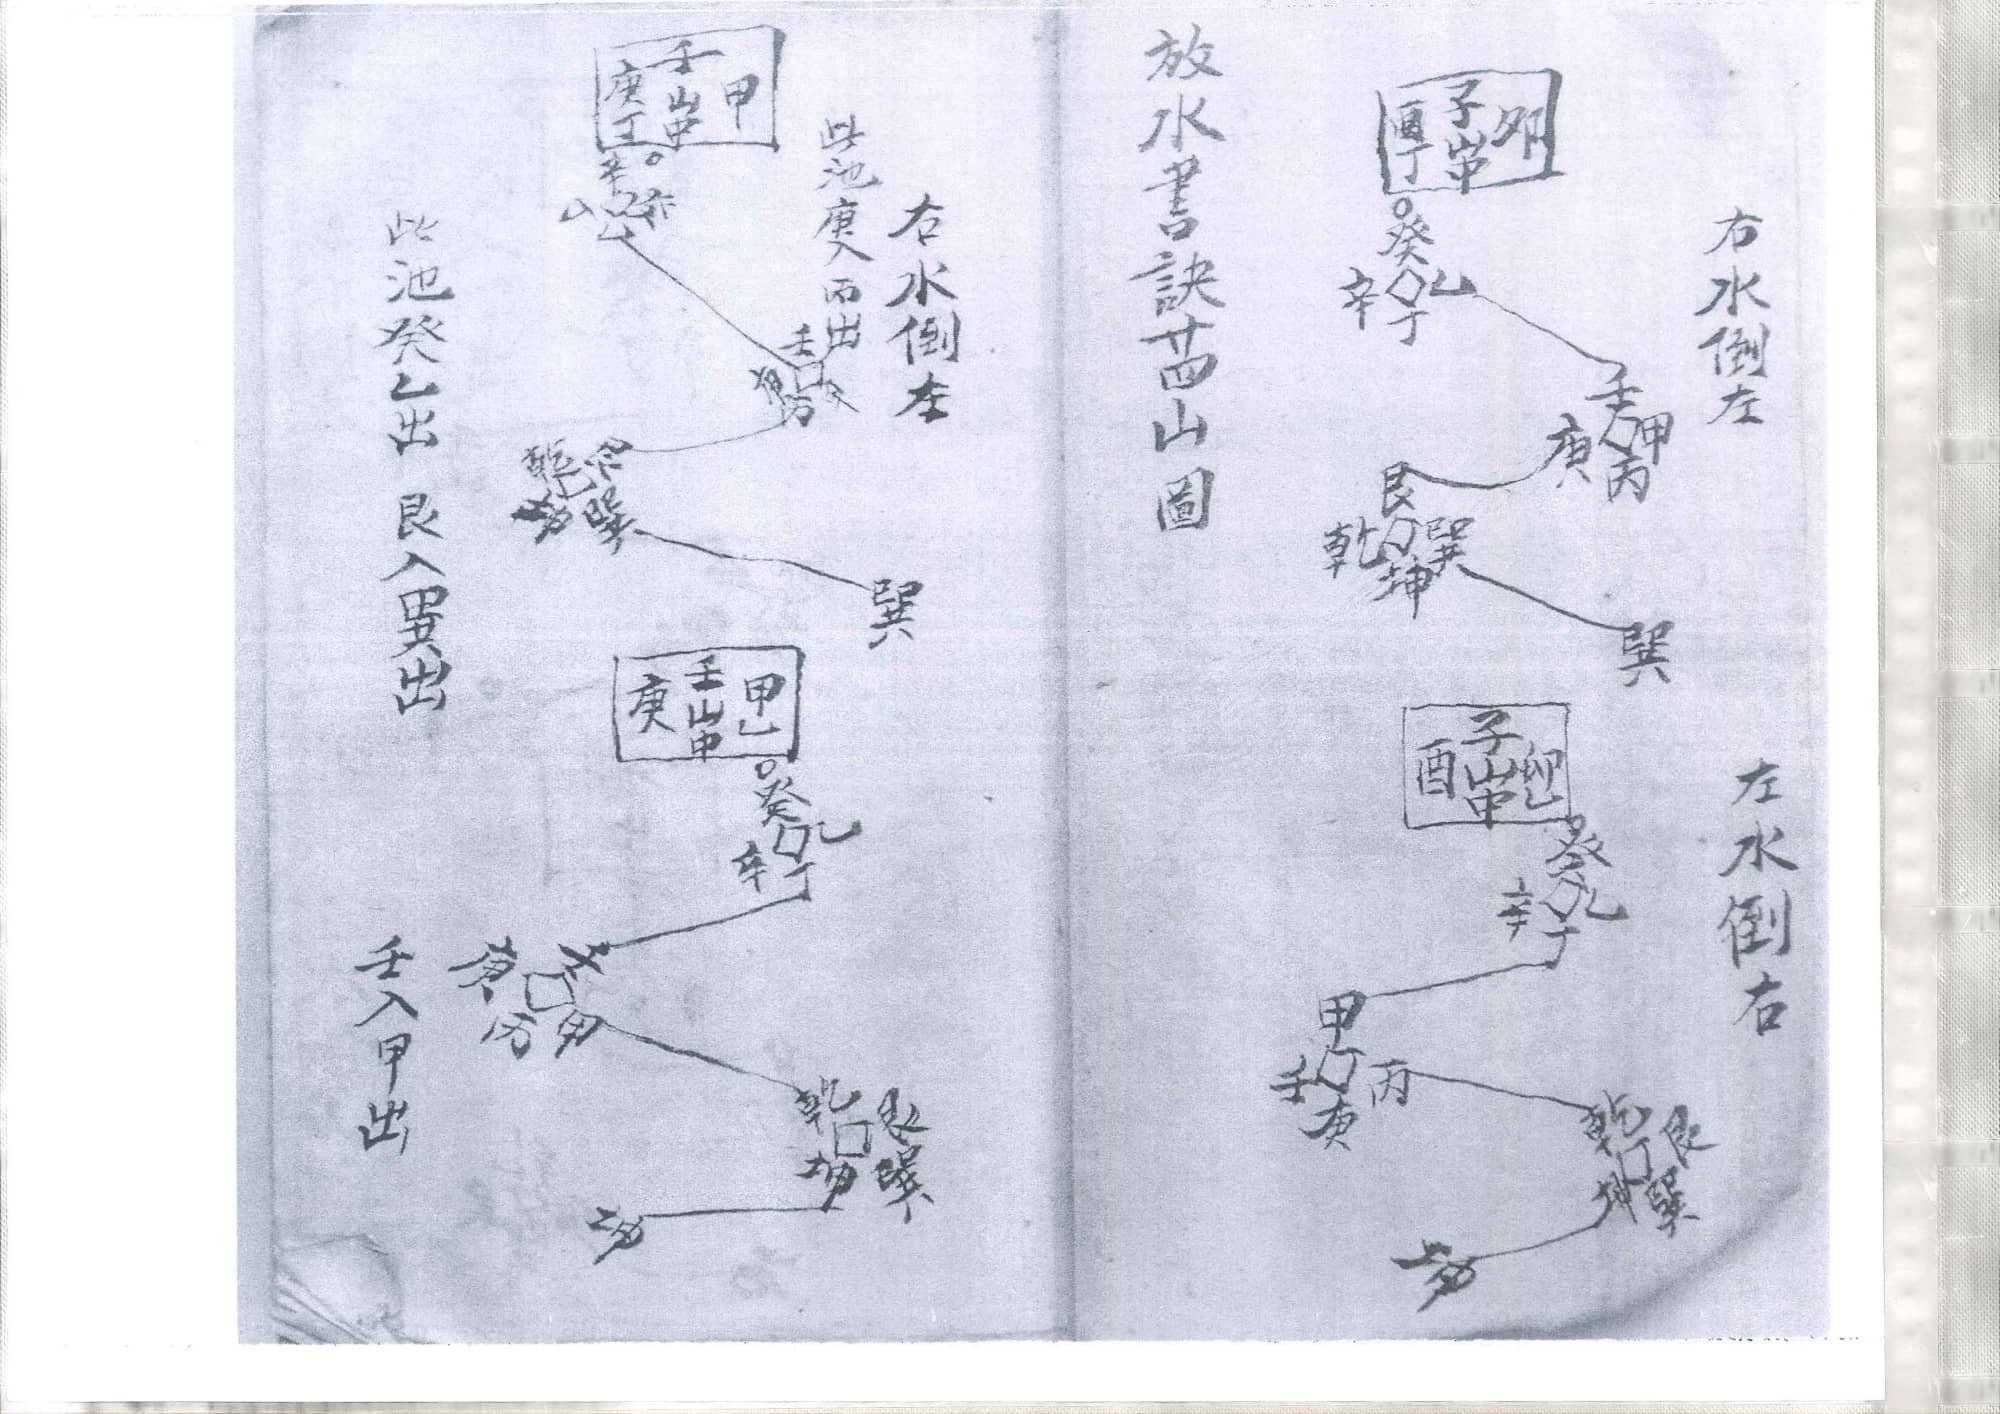 放水書訣廿四山圖
右水倒左
卯
子山
酉丁
癸
乙
辛
丁
壬
甲
庚
丙
艮
乾
巽
坤
巽
左水倒右
卯乙
子山中
酉
癸
乙
辛
丁
甲
壬
丙
庚
乾
艮
坤
巽
坤
右水倒左
此池庚入丙出
甲
壬山中
庚丁
辛
壬
丙
乾
艮
坤
巽
巽
此池癸乙出 艮入巽出
甲乙
壬山中
庚
癸
乙
辛
丁
庚
壬
丙
甲
乾
艮
坤
巽
坤
壬入甲出